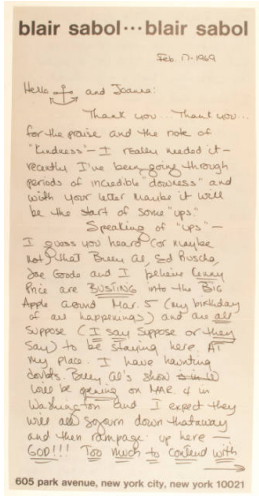 blair sabol··· blair sabol
Feb. 17-1969
Hello and Joanna:
Thank you... Thank you...
for the praise and the note of
"kindness" - I really needed it -
recently I've been going through
periods of incredible downess" and
with your letter maybe it will
be the start of some "ups".
Speaking of "ups" -
I guess you heard (or maybe
not) that Billy Al, Ed Ruscha,
Joe Goode and I believe Kenny
Price are BUSING into the BIG
Apple around Mar. 5 (my birthday
of all happenings) and are all
suppose (I say suppose or they
say) to be staying here. AT
my place. I have haunting
doubts. Billy Al's show
will be opening on MAR. 4 in
Washington and I expect they
will all sojourn down thataway
and then rampage up here -
GOD!!! Too much to contend with
605 park avenue, new york city, new york 10021